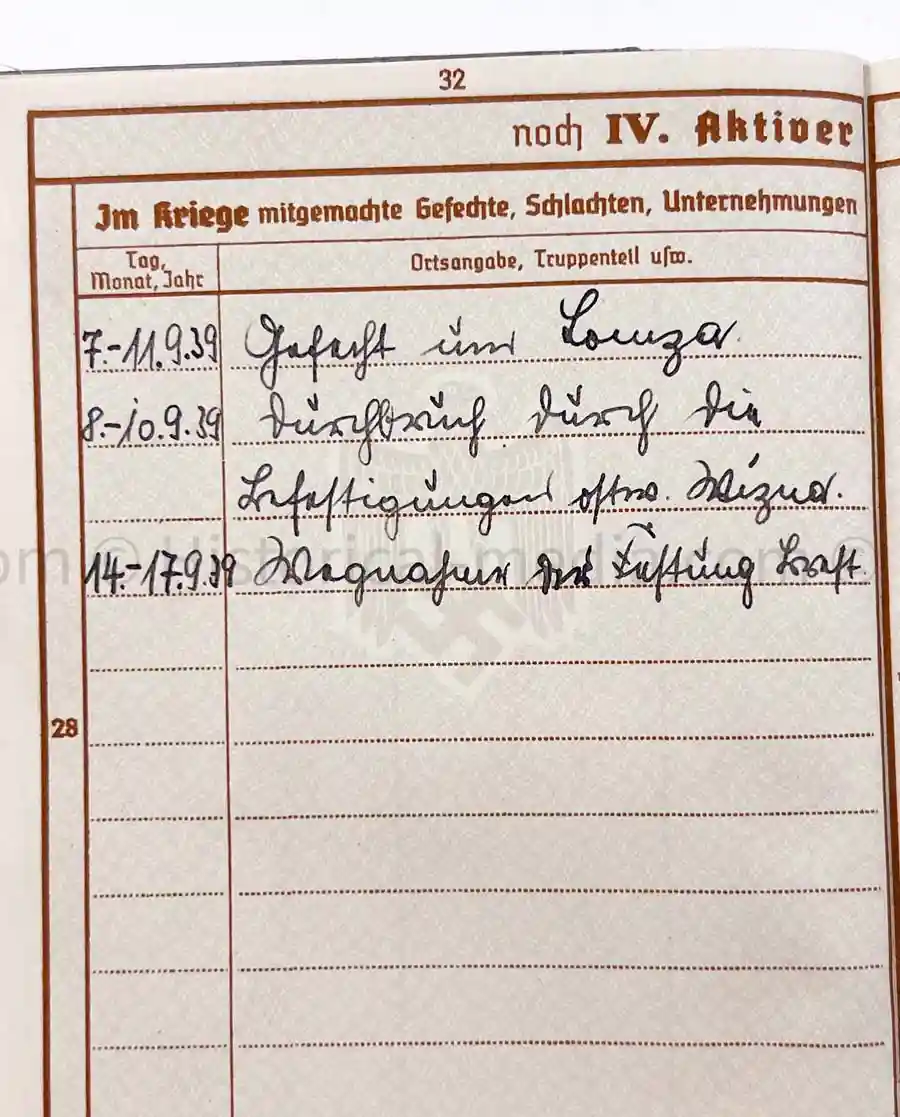 32
noch IV. Aktiver
Im Kriege mitgemachte Gefechte, Schlachten, Unternehmungen
Tag, Monat, Jahr
Ortsangabe, Truppenteil usw.
7.-11.9.39 Gefecht um Lomza.
8.-10.9.39 Durchbruch durch die
Befestigungen ostw. Wizna.
14.-17.9.39 Wegnahme der Festung Brest
28
om © Historical-media.com ©